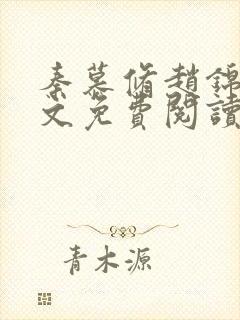 秦慕脩趙錦
文免費閱讀
青木源